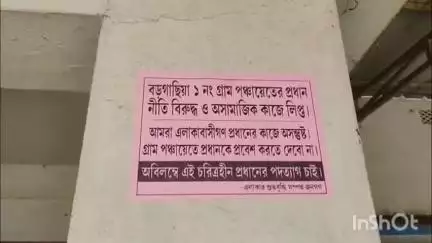 বড়গাছিয়া ১ নং গ্রাম পঞ্চায়েতের প্রধান
নীতি বিরুদ্ধ ও অসামাজিক কাজে লিপ্ত।
আমরা এলাকাবাসীগণ প্রধানের কাজে অসন্তুষ্ট।
গ্রাম পঞ্চায়েতে প্রধানকে প্রবেশ করতে দেবো না।
অবিলম্বে এই চরিত্রহীন প্রধানের পদত্যাগ চাই।
-এলাকার শুভবুদ্ধি সম্পন্ন জনগণ
InShOt